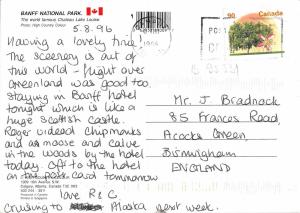 BANFF NATIONAL PARK.
The world famous Chateau Lake Louise
Photo: High Country Colour
5.8.96
Having a lovely time
The scenery is out of
this world - flight over
Greenland was good too.
Staying in Banff hotel
tonight which is like a
huge Scottish Castle.
Roger videoed Chipmunks
and a moose and calve
in the woods by the hotel
today. Off to the hotel
on the post card tomorrow
love R & C.
Cruising to Alaska next week.
1996
90
Canada
Mr. J. Bradnock
85 Frances Road,
Acocks Green
Birmingham
ENGLAND